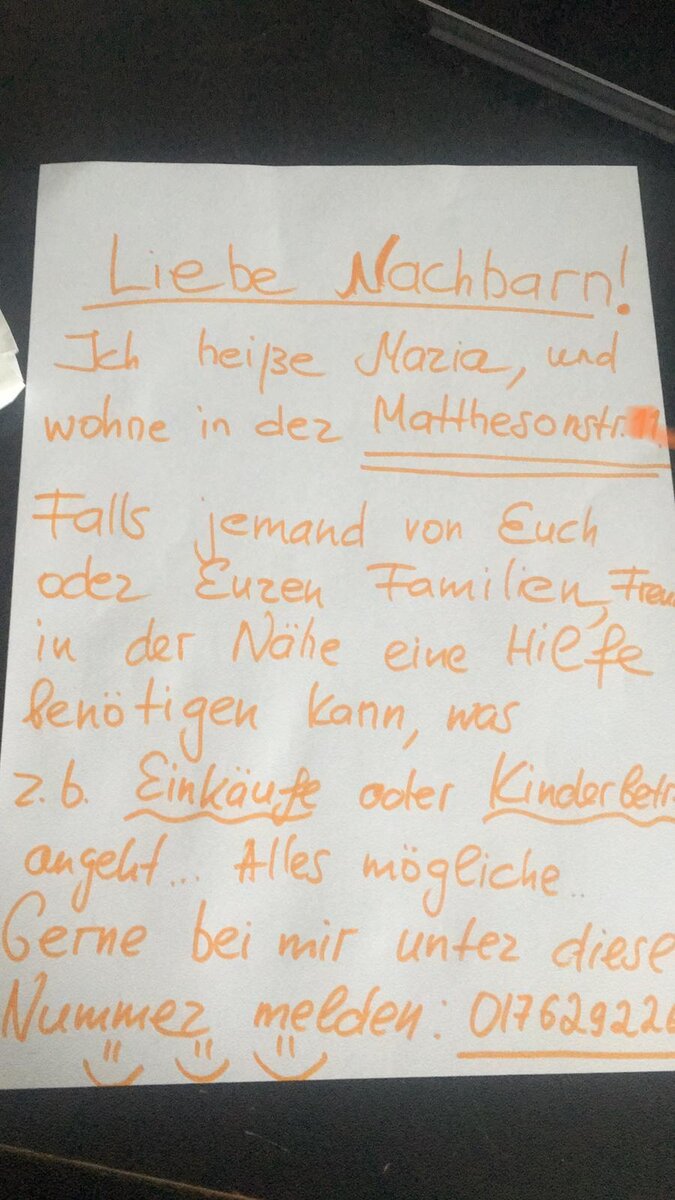 Liebe Nachbarn!
Ich heiße Maria, und
wohne in der Matthesonstr.
Falls jemand von Euch
oder Euren Familien, Freu
in der Nähe eine Hilfe
benötigen kann, was
z.b. Einkäufe oder Kinderbetr
angeht... Alles mögliche..
Gerne bei mir unter diese
Nummer melden: 017629226